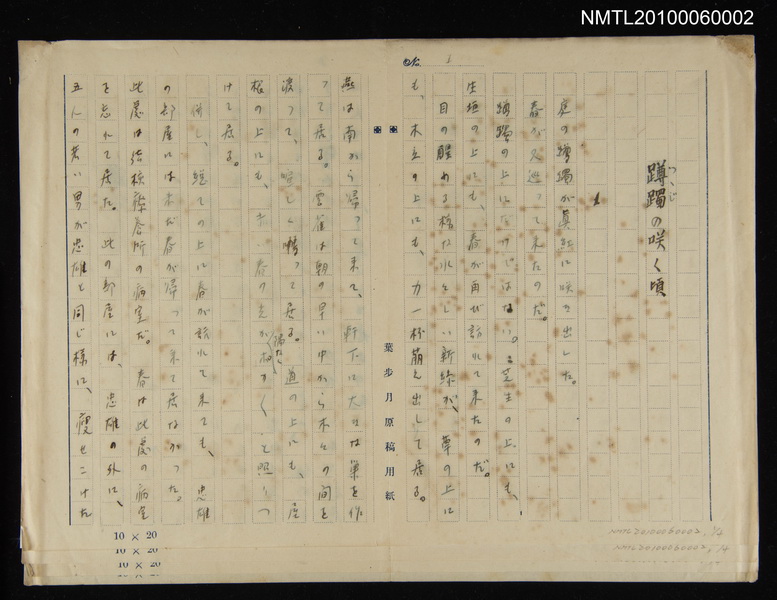 NMTL20100060002
躑躅の咲く頃
つゝじ
1
庭の躑躅が眞紅に咲き出した。
春が又巡って来たのだ。
躑躅の上にだけではない。芝生の上にも、
生垣の上にも、春が再び訪れて来たのだ。
目の醒める様な水々しい新緑が、草の上に
も、木立の上にも、力一杯萌え出して居る。
葉歩月原稿用紙
燕は南から帰って来て、軒下に大きな巣を作
って居る。雲雀は朝の早い中から木々の間を
渡って、喧しく囀って居る。道の上にも、屋
根の上にも、春の光が々と照りつ
けて居る。
併し、総ての上に春が訪れて来ても、忠雄
の部屋には未だ春が帰って来て居なかった。
此處は結核療養所の病室だ。春は此處の病室
を忘れて居た。此の部屋には、忠雄の外に、
五人の若い男が忠雄と同じ様に、瘦せこけた
10 × 20
10 × 20
10 × 20
NMTL20100060002, 3/4
NMTL20100060002,